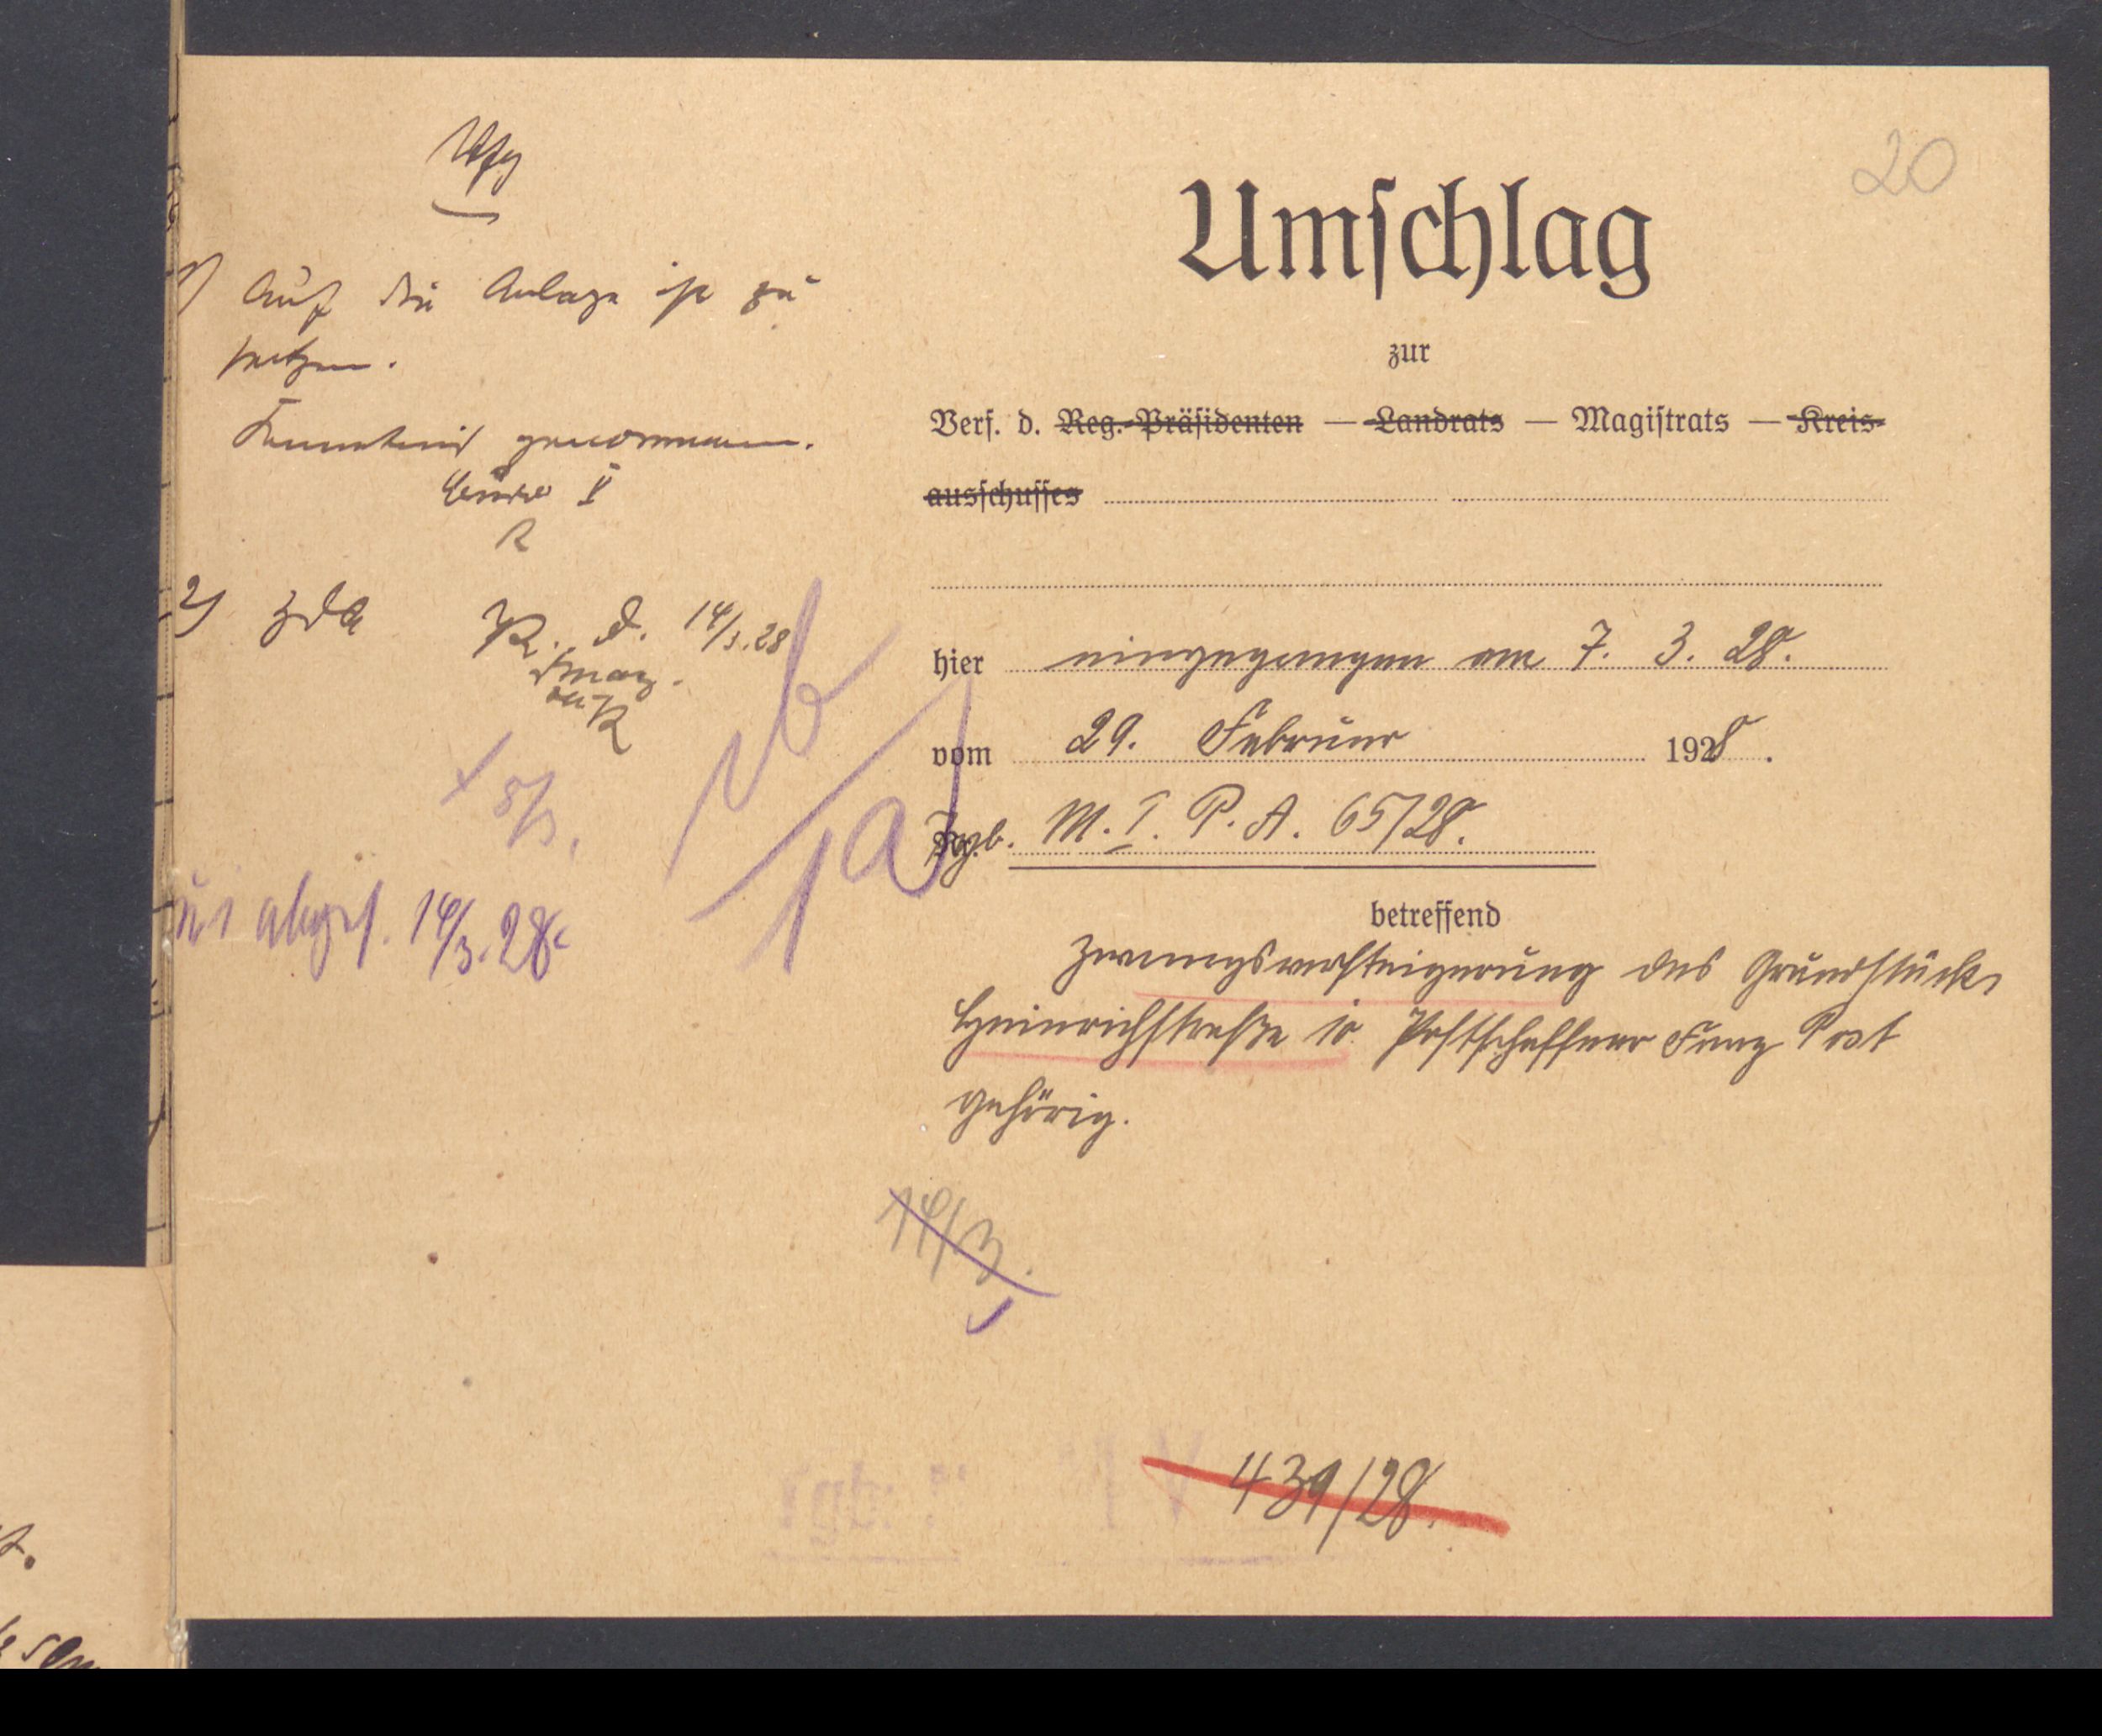 Vfg
1) Auf die Anlage ist zu
setzen.
Kenntnis genommen.
Büro V
R
2) zdA K. d. 14/3.28
Mag.
5/3.
zu 1 abges. 14/3.28
20
Umſchlag
zur
Verf. d. Reg.-Präſidenten — Landrats — Magiſtrats — Kreis-
ausſchuſſes
hier eingegangen am 7. 3. 28.
vom 29. Februar 1928.
Tgb. M. I. P. A. 65/28.
betreffend
Zwangsversteigerung des Grundstücks
Heinrichstraße 10 Postschaffner Franz Post
gehörig.
14/3.
439/28.